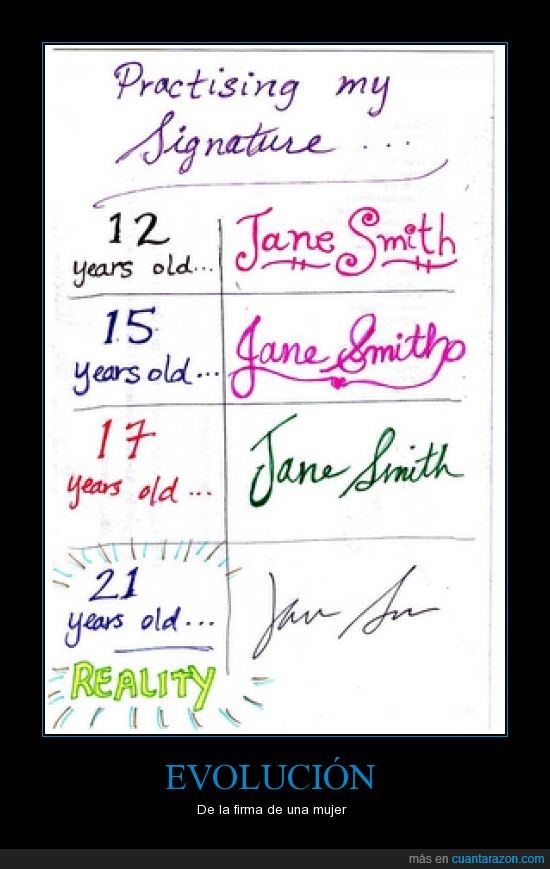 Practising my
Signature ...
12
years old...
Jane Smith
15
years old...
Jane Smith
17
years old ...
Jane Smith
21
years old...
REALITY
EVOLUCIÓN
De la firma de una mujer
más en cuantarazon.com